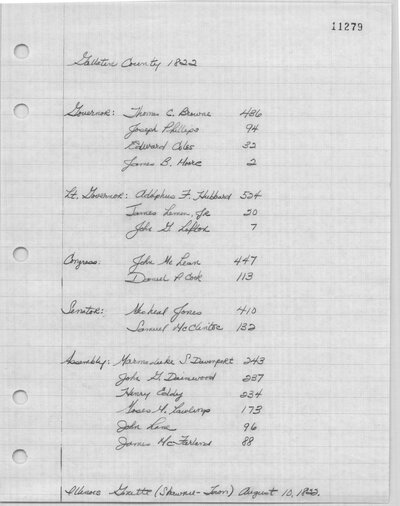 11279
Gallatin County 1822
Governor: Thomas C. Browne 486
Joseph Phillips 94
Edward Coles 32
James B. Moore 2
Lt. Governor: Adolphus F. Hubbard 524
James Lemen, Jr 20
John G. Lofton 7
Congress: John McLean 447
Daniel P. Cook 113
Senator: Micheal Jones 410
Samuel McClintoc 132
Assembly: Marmaduke S. Davenport 243
John G. Daimwood 237
Henry Eddy 234
Moses M. Rawlings 173
John Lane 96
James McFarland 88
Illinois Gazette (Shawnee-Town) August 10, 1822.